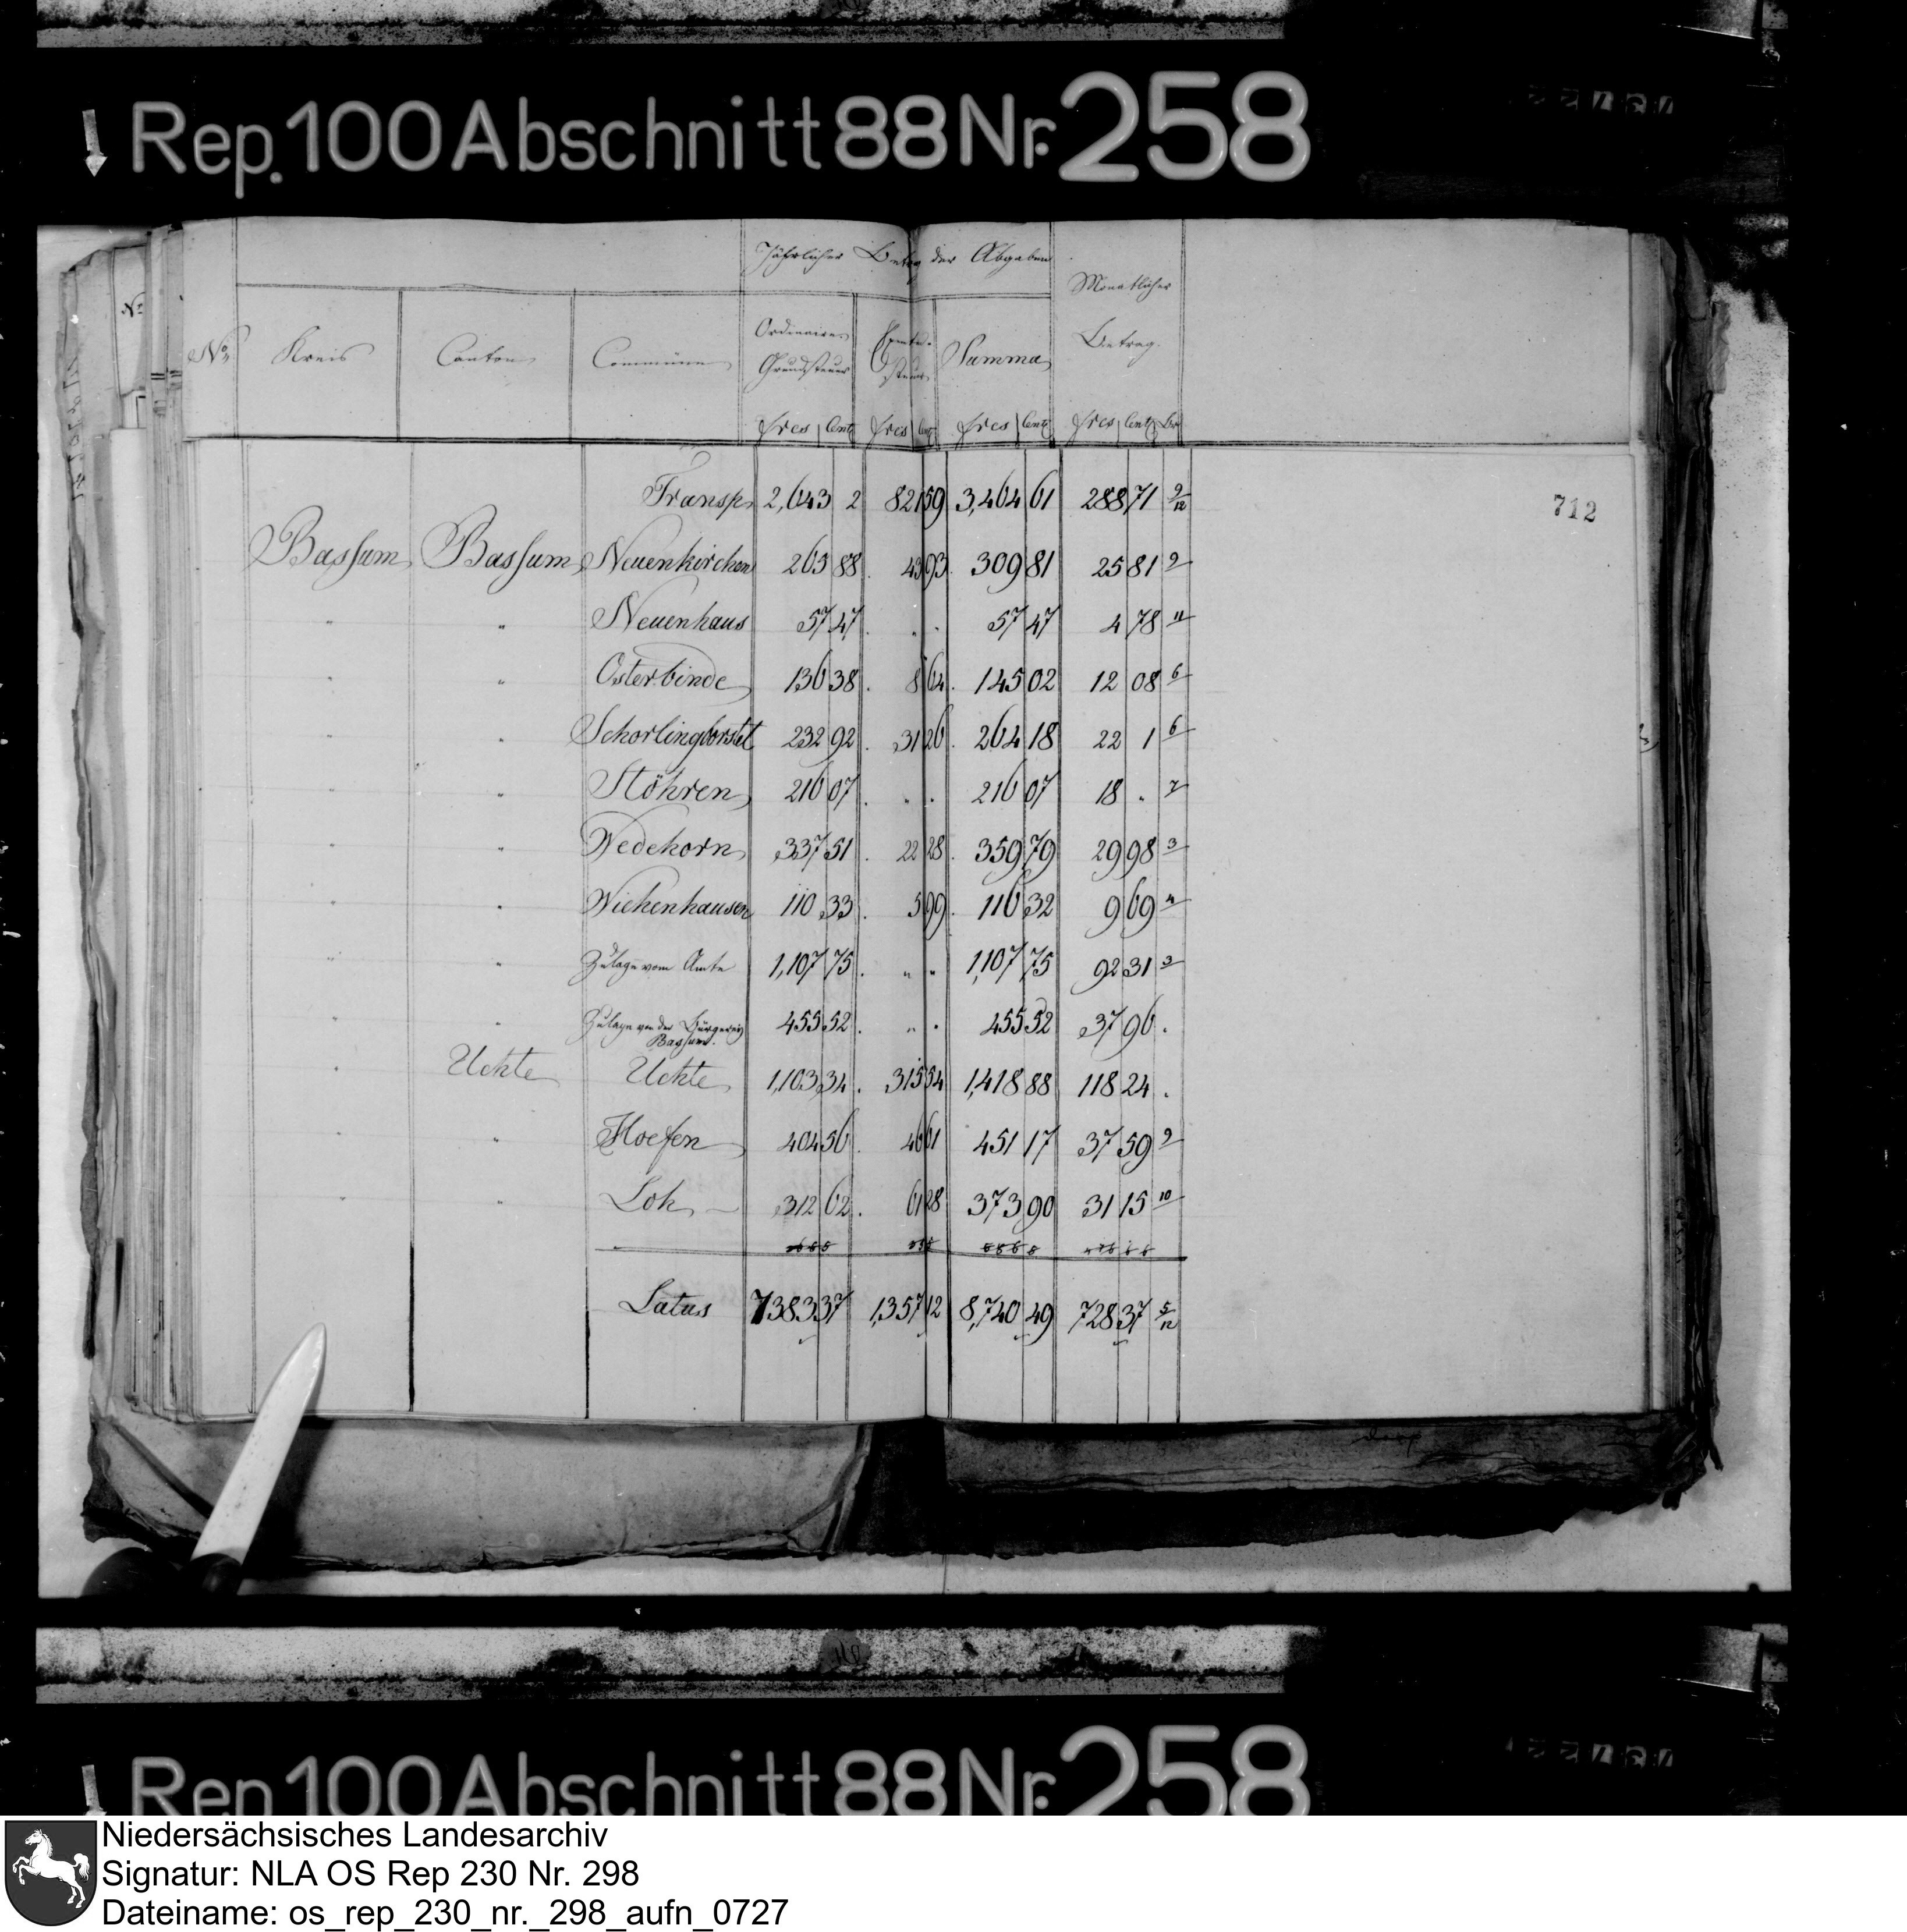 Rep. 100 Abschnitt 88 Nr. 258
Jährlicher Betrag der Abgaben
Monatlicher
Betrag.
No. Kreis Canton Commüne Ordinaire Grundsteuer Summa
frcs Cent frcs Cent frcs Cent frcs Cent
Transp. 2,643 2 821 59 3,464 61 288 71 9/12
712
Bassum Bassum Neuenkirchen 265 88 43 93 309 81 25 81 9
" " Neuenhaus 57 47 . . 57 47 4 78 11
" " Osterbinde 136 38 8 64 145 02 12 08 6
" " Schorlingborstel 232 92 31 26 264 18 22 1 6
" " Stöhren 216 07 . . 216 07 18 . 7
" " Wedehorn 337 51 22 28 359 79 29 98 3
" " Wichenhausen 110 33 5 99 116 32 9 69 4
" " Zulage vom Amte 1,107 75 " " 1,107 75 92 31 3
" " Zulage von der Bürgerey Bassum. 455 52 " " 455 52 37 96 .
" Uchte Uchte 1,103 34 315 54 1,418 88 118 24 .
" " Hoefen 404 56 46 61 451 17 37 59 9
" " Loh 312 62 61 28 373 90 31 15 10
Latus 7383 37 1,357 12 8,740 49 728 37 5/12
Rep 100 Abschnitt 88 Nr. 258
Niedersächsisches Landesarchiv
Signatur: NLA OS Rep 230 Nr. 298
Dateiname: os_rep_230_nr._298_aufn_0727